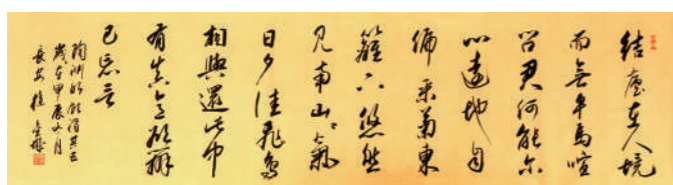 結廬在人境
而無車馬喧
問君何能尔
心遠地自
偏采菊東
籬下悠然
見南山〻氣
日夕佳飛鳥
相與還此中
有真意欲辯
已忘言
陶淵明飲酒其五
歲在甲辰月
長安